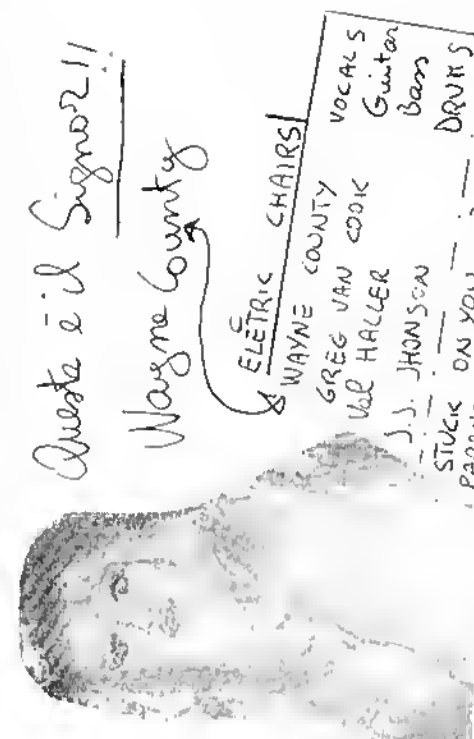 Questa è il Signor2!!
Wayne County
C
ELETRIC CHAIRS
WAYNE COUNTY VOCALS
GREG VAN COOK Guitar
Val HALLER Bass
J.J. JHONSON DRUMS
STUCK ON YOU